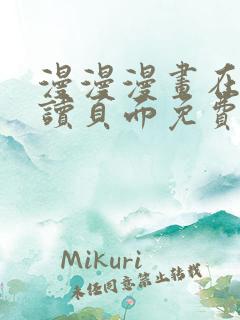 漫漫漫畫在
讀頁面免費
Mikuri
未經同意禁止轉載